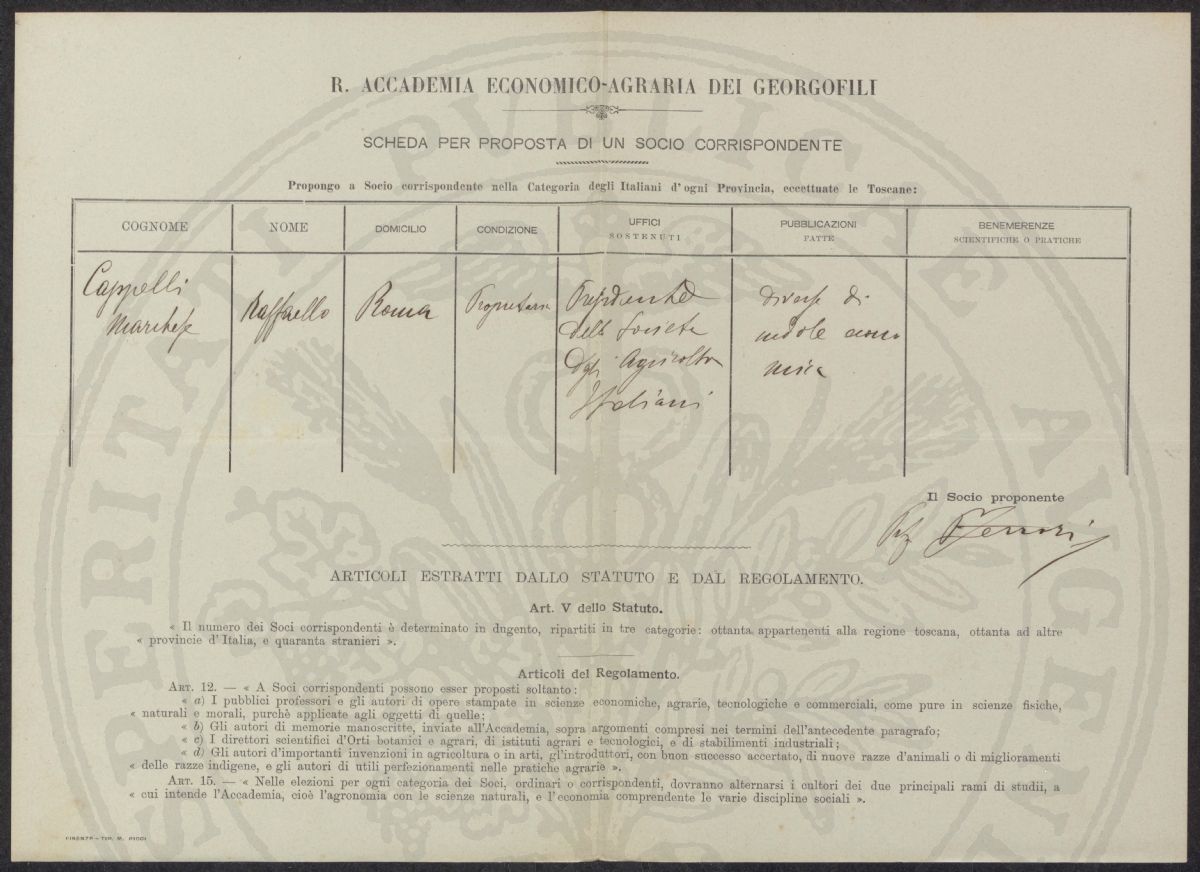 R. ACCADEMIA ECONOMICO-AGRARIA DEI GEORGOFILI
SCHEDA PER PROPOSTA DI UN SOCIO CORRISPONDENTE
Propongo a Socio corrispondente nella Categoria degli Italiani d'ogni Provincia, eccettuate le Toscane:
COGNOME
NOME
DOMICILIO
CONDIZIONE
UFFICI
SOSTENUTI
PUBBLICAZIONI
FATTE
BENEMERENZE
SCIENTIFICHE O PRATICHE
Cappelli
Marchese
Raffaello
Roma
Proprietario
Presidente
della Società
degli Agricoltori
Italiani
diverse di
indole econo
mica
Il Socio proponente
ARTICOLI ESTRATTI DALLO STATUTO E DAL REGOLAMENTO.
Art. V dello Statuto.
« Il numero dei Soci corrispondenti è determinato in dugento, ripartiti in tre categorie: ottanta appartenenti alla regione toscana, ottanta ad altre
« provincie d'Italia, e quaranta stranieri ».
Articoli del Regolamento.
ART. 12. — « A Soci corrispondenti possono esser proposti soltanto:
« a) I pubblici professori e gli autori di opere stampate in scienze economiche, agrarie, tecnologiche e commerciali, come pure in scienze fisiche,
« naturali e morali, purchè applicate agli oggetti di quelle;
« b) Gli autori di memorie manoscritte, inviate all'Accademia, sopra argomenti compresi nei termini dell'antecedente paragrafo;
« c) I direttori scientifici d'Orti botanici e agrari, di istituti agrari e tecnologici, e di stabilimenti industriali;
« d) Gli autori d'importanti invenzioni in agricoltura o in arti, gl'introduttori, con buon successo accertato, di nuove razze d'animali o di miglioramenti
« delle razze indigene, e gli autori di utili perfezionamenti nelle pratiche agrarie ».
ART. 15. — « Nelle elezioni per ogni categoria dei Soci, ordinari o corrispondenti, dovranno alternarsi i cultori dei due principali rami di studii, a
« cui intende l'Accademia, cioè l'agronomia con le scienze naturali, e l'economia comprendente le varie discipline sociali ».
FIRENZE — TIP. M. RICCI